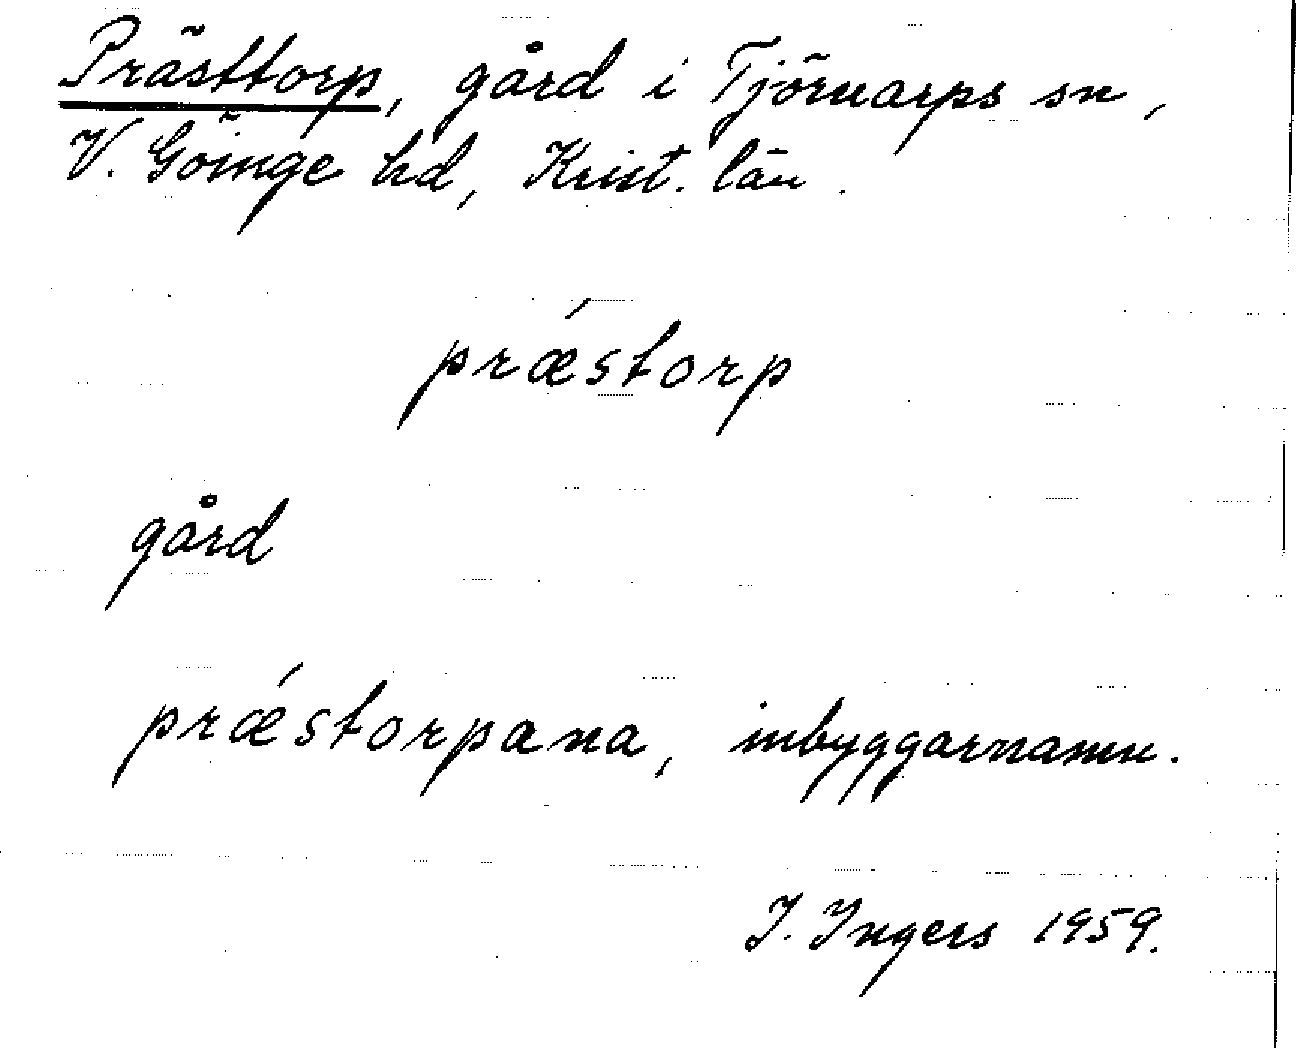 Prästtorp, gård i Tjörnarps sn,
V. Göinge hd, Krist. län.
prǽstorp
gård
prǽstorpana, inbyggarnamn.
I. Ingers 1959.